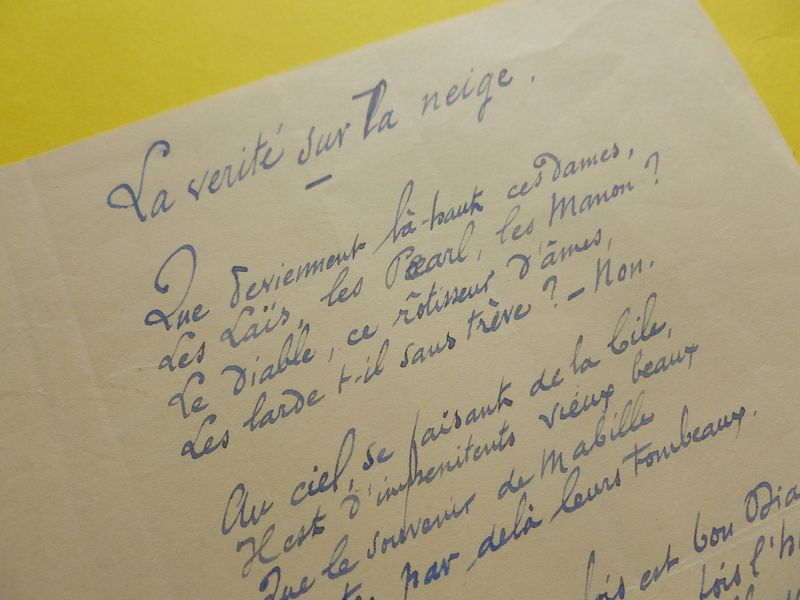 La verité sur la neige.
Que deviennent là-haut ces dames,
Les Laïs, les Pearl, les Manon ?
Le Diable, ce rôtisseur d'âmes,
Les larde t-il sans trève ? - Non.
Au ciel, se faisant de la bile,
Il est d'impenitents vieux beaux
Que le souvenir de Mabille
par delà leurs tombeaux.
est bon Dia